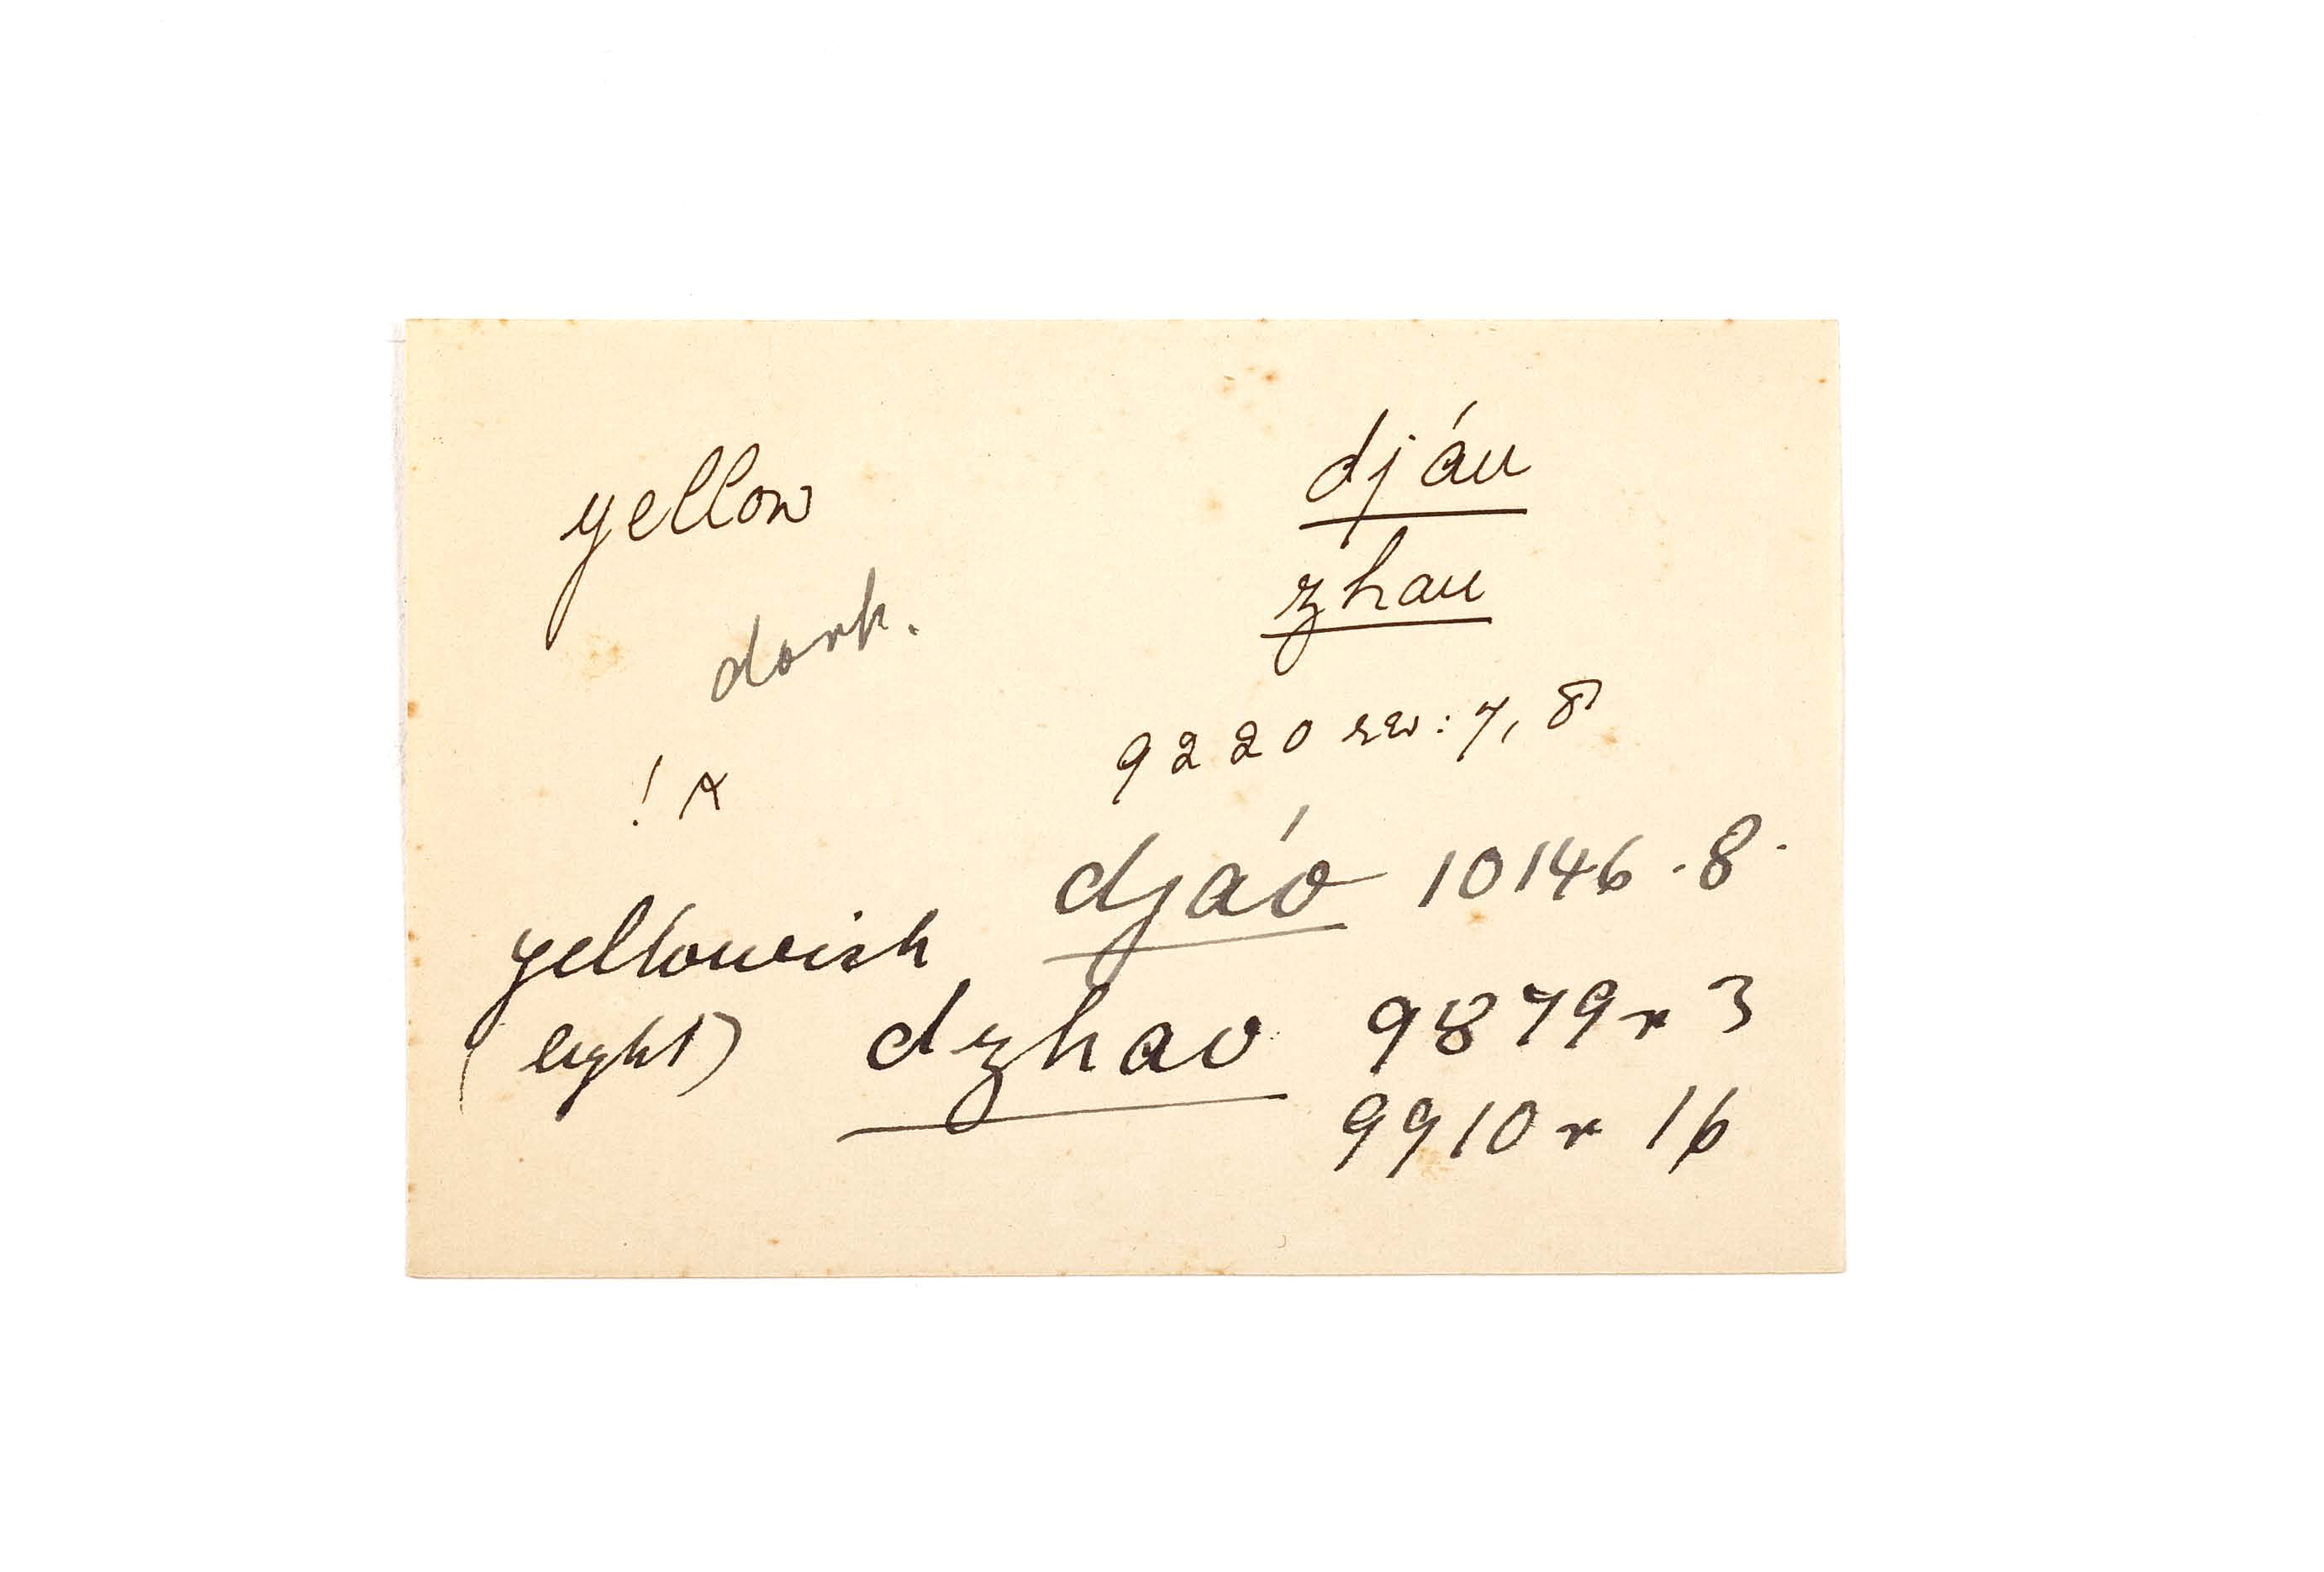 yellow djáu
zhau
dark.
9220 rev: 7, 8
! x
djáo 10146 . 8 .
yellowish
(light) dzhao 9879 r 3
9910 r 16